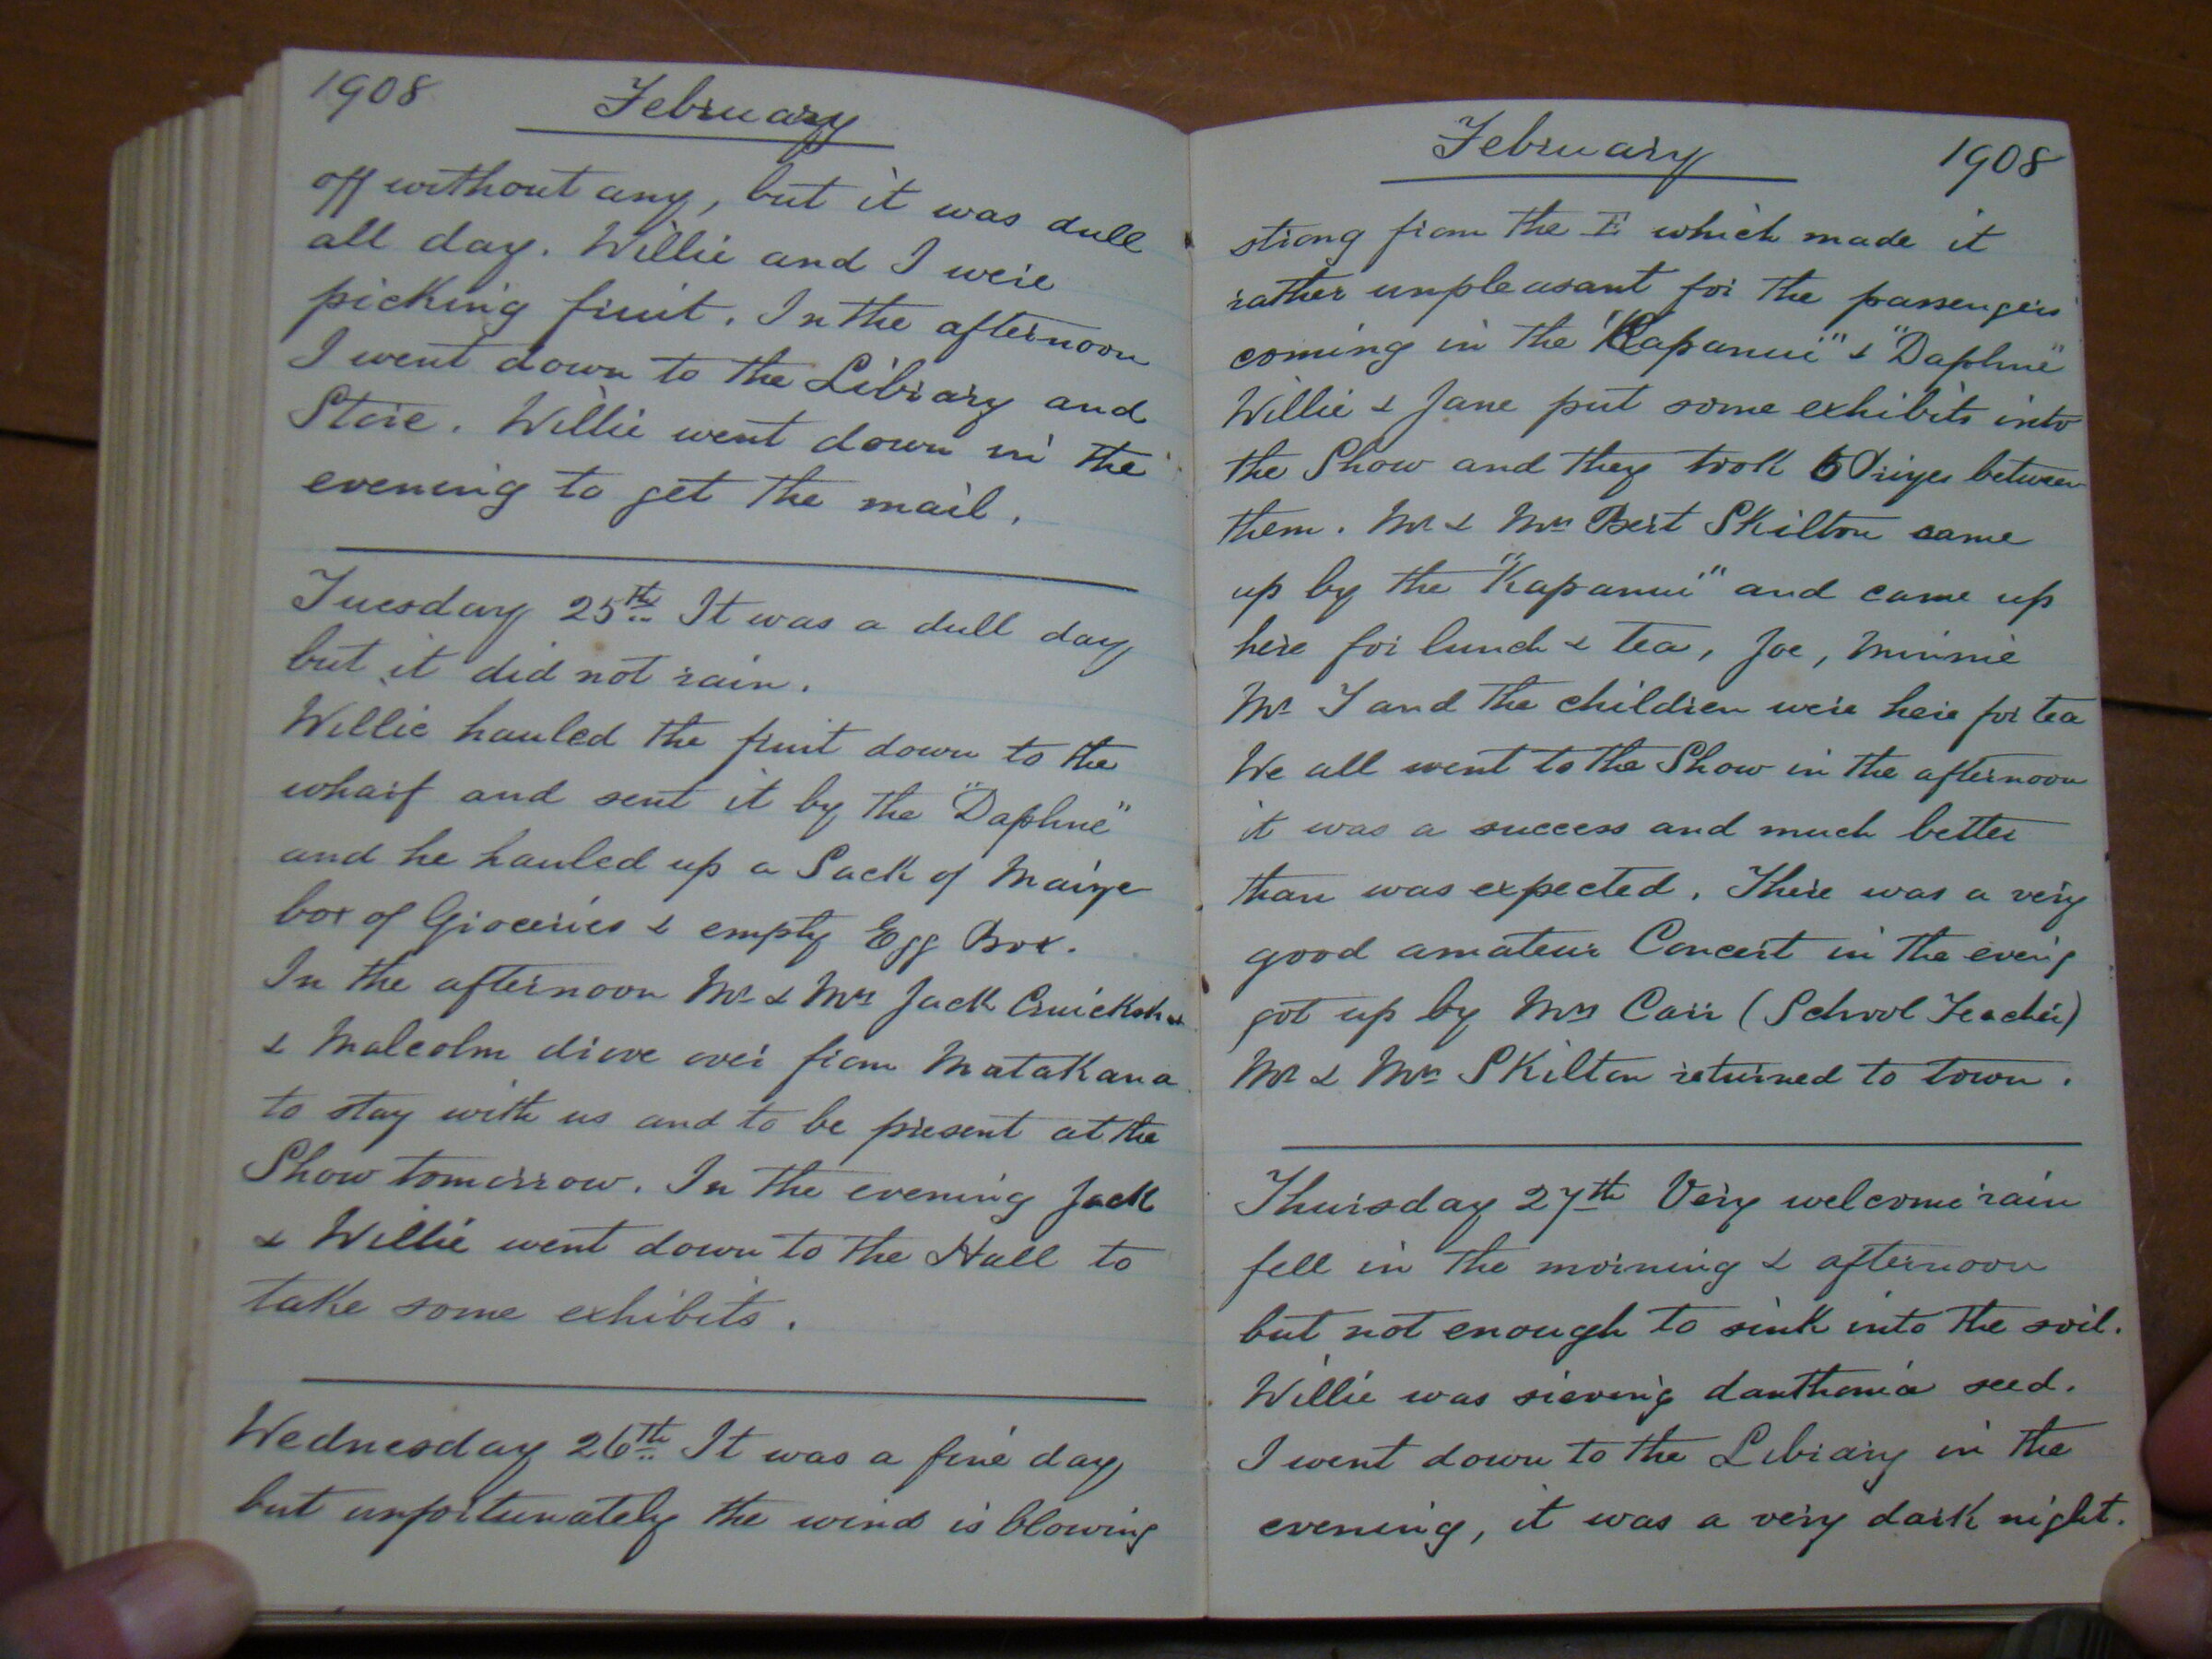 1908 February
off without any, but it was dull
all day. Willie and I were
picking fruit. In the afternoon
I went down to the Library and
Store. Willie went down in the
evening to get the mail.
Tuesday 25th It was a dull day
but it did not rain.
Willie hauled the fruit down to the
wharf and sent it by the "Daphne"
and he hauled up a Sack of Maize
box of Groceries & empty Egg Box.
In the afternoon Mr & Mrs Jack
& Malcolm drove over from Matakana
to stay with us and to be present at the
Show tomorrow. In the evening Jack
& Willie went down to the Hall to
take some exhibits.
Wednesday 26th It was a fine day
but unfortunately the wind is blowing
February 1908
strong from the E which made it
rather unpleasant for the passengers
coming in the "Kapanui" & "Daphne"
Willie & Jane put some exhibits into
the Show and they took 6 Prizes between
them. Mr & Mrs Bert Skilton came
up by the "Kapanui" and came up
here for lunch & tea, Joe, Minnie
Mr T and the children were here for tea
We all went to the Show in the afternoon
it was a success and much better
than was expected. There was a very
good amateur Concert in the even'g
got up by Mrs Carr (School Teacher)
Mr & Mrs Skilton returned to town.
Thursday 27th Very welcome rain
fell in the morning & afternoon
but not enough to sink into the soil.
Willie was sieving danthonia seed.
I went down to the Library in the
evening, it was a very dark night.